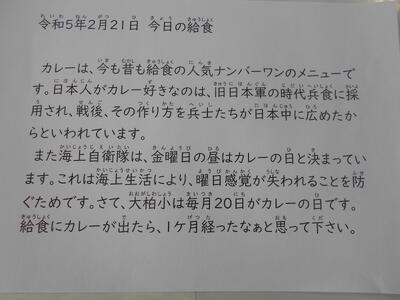 令和5年2月21日 今日の給食
カレーは、今も昔も給食の人気ナンバーワンのメニューで
す。日本人がカレー好きなのは、旧日本軍の時代兵食に採
用され、戦後、その作り方を兵士たちが日本中に広めたか
らといわれています。
また海上自衛隊は、金曜日の昼はカレーの日と決まってい
ます。これは海上生活により、曜日感覚が失われることを防
ぐためです。さて、大柏小は毎月20日がカレーの日です。
給食にカレーが出たら、1ケ月経ったなぁと思って下さい。